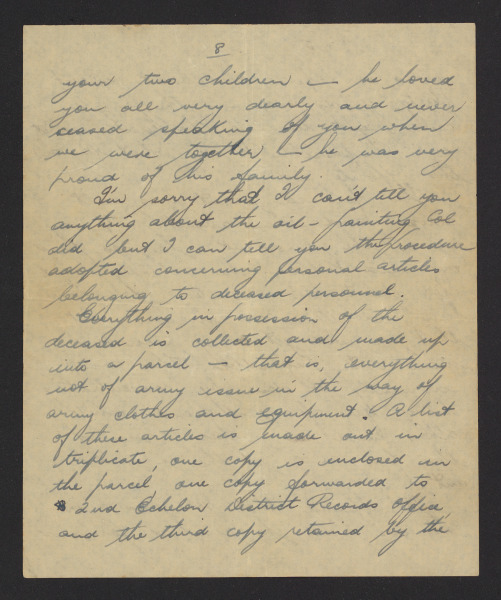 8
your two children — he loved
you all very dearly and never
ceased speaking of you when
we were together – he was very
proud of his family.
I'm sorry that I can't tell you
anything about the oil-painting Col
did but I can tell you the procedure
adopted concerning personal articles
belonging to deceased personnel.
Everything in possession of the
deceased is collected and made up
into a parcel — that is, everything
not of army issue in the way of
army clothes and equipment. A list
of these articles is made out in
triplicate, one copy is enclosed in
the parcel one copy forwarded to
2nd Echelon District Records Office,
and the third copy retained by the